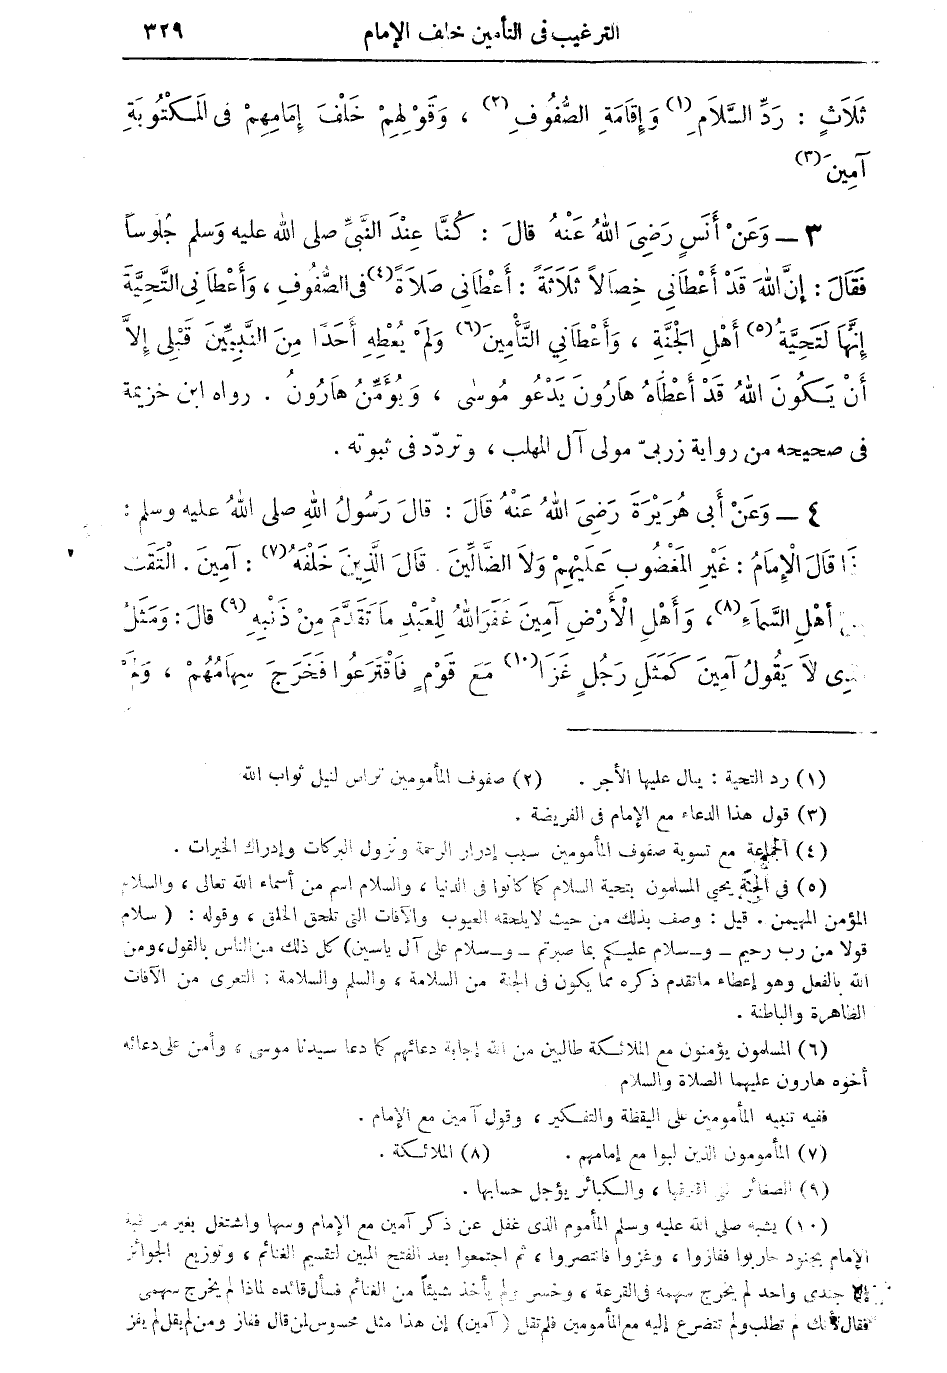 الترغيب فى التأمين خلف الإمام ٣٢٩
ثَلَاثٍ : رَدِّ السَّلَامِ (١) وَإِقَامَةِ الصُّفُوفِ (٢) ، وَقَوْلِهِمْ خَلْفَ إِمَامِهِمْ فى المَكْتُوبَةِ
آمِينَ (٣)
٣ — وَعَنْ أَنَسٍ رَضِىَ اللهُ عَنْهُ قالَ : كُنَّا عِنْدَ النَّبِىِّ صلى الله عليه وسلم جُلُوساً
فَقَالَ : إِنَّ اللهَ قَدْ أَعْطَانِى خِصالاً ثَلَاثَةً : أَعْطَانِى صَلَاةً (٤) فى الصُّفُوفِ ، وَأَعْطَانِى التَّحِيَّةَ
إِنَّهَا لَتَحِيَّةُ (٥) أَهْلِ الجَنَّةِ ، وَأَعْطَانِي التَّأْمِينَ (٦) وَلَمْ يُعْطِهِ أَحَدًا مِنَ النَّبِيِّينَ قَبْلِى إِلاَّ
أَنْ يَكُونَ اللهُ قَدْ أَعْطَاهُ هَارُونَ يَدْعُو مُوسٰى ، وَيُؤَمِّنُ هَارُونُ . رواه ابن خزيمة
فى صحيحه من رواية زربىّ مولى آل المهلب ، وتردّد فى ثبوته .
٤ — وَعَنْ أَبى هُرَيْرَةَ رَضِىَ اللهُ عَنْهُ قَالَ : قالَ رَسُولُ اللهِ صلى اللهُ عليه وسلم :
ذَا قَالَ الْإِمَامُ : غَيْرِ المَغْضُوبِ عَلَيْهِمْ وَلاَ الضَّالِّينَ . قَالَ الَّذِينَ خَلْفَهُ (٧) : آمِينَ . الْتَقَتْ
أَهْلِ السَّمَاءِ (٨) ، وَأَهْلِ الْأَرْضِ آمِينَ غَفَرَ اللهُ لِلْعَبْدِ مَا تَقَدَّمَ مِنْ ذَنْبِهِ (٩) قالَ : وَمَثَلُ
ـذِى لاَ يَقُولُ آمِينَ كَمَثَلِ رَجُلٍ غَزَا (١٠) مَعَ قَوْمٍ فَاقْتَرَعُوا فَخَرَجَ سِهَامُهُمْ ، وَلَمْ
(١) رد التحية : ينال عليها الأجر . (٢) صفوف المأمومين تراس لنيل ثواب الله
(٣) قول هذا الدعاء مع الإمام فى الفريضة .
(٤) الجماعة مع تسوية صفوف المأمومين سبب إدرار الرحمة ونزول البركات وإدراك الخيرات .
(٥) فى الجنة يحيى المسلمون بتحية السلام كما كانوا فى الدنيا ، والسلام اسم من أسماء الله تعالى ، والسلام
المؤمن المهيمن . قيل : وصف بذلك من حيث لايلحقه العيوب والآفات التى تلحق الخلق ، وقوله : ( سلام
قولا من رب رحيم — و — سلام عليكم بما صبرتم — و — سلام على آل ياسين) كل ذلك من الناس بالقول، ومن
الله بالفعل وهو إعطاء ماتقدم ذكره مما يكون فى الجنة من السلامة ، والسلم والسلامة : التعرى من الآفات
الظاهرة والباطنة .
(٦) المسلمون يؤمنون مع الملائكة طالبين من الله إجابة دعائهم كما دعا سيدنا موسى ، وأمن على دعائه
أخوه هارون عليهما الصلاة والسلام
ففيه تنبيه المأمومين على اليقظة والتفكير ، وقول آمين مع الإمام .
(٧) المأمومون الذين لبوا مع إمامهم . (٨) الملائكة .
(٩) الصغائر اقترفها ، والكبائر يؤجل حسابها .
(١٠) يشبه صلى الله عليه وسلم المأموم الذى غفل عن ذكر آمين مع الإمام وسها واشتغل بغير مراقبة
الإمام بجنود حاربوا ففازوا ، وغزوا فانتصروا ، ثم اجتمعوا بعد الفتح المبين لتقسيم الغنائم ، وتوزيع الجوائز
إلا جندى واحد لم يخرج سهمه فى القرعة ، وخسر ولم يأخذ شيئاً من الغنائم فسأل قائده لماذا لم يخرج سهمى
فقال لأنك لم تطلب ولم تتضرع إليه مع المأمومين فلم تقل ( آمين) إن هذا مثل محسوس لمن قال ففاز ومن لم يقل لم يفز